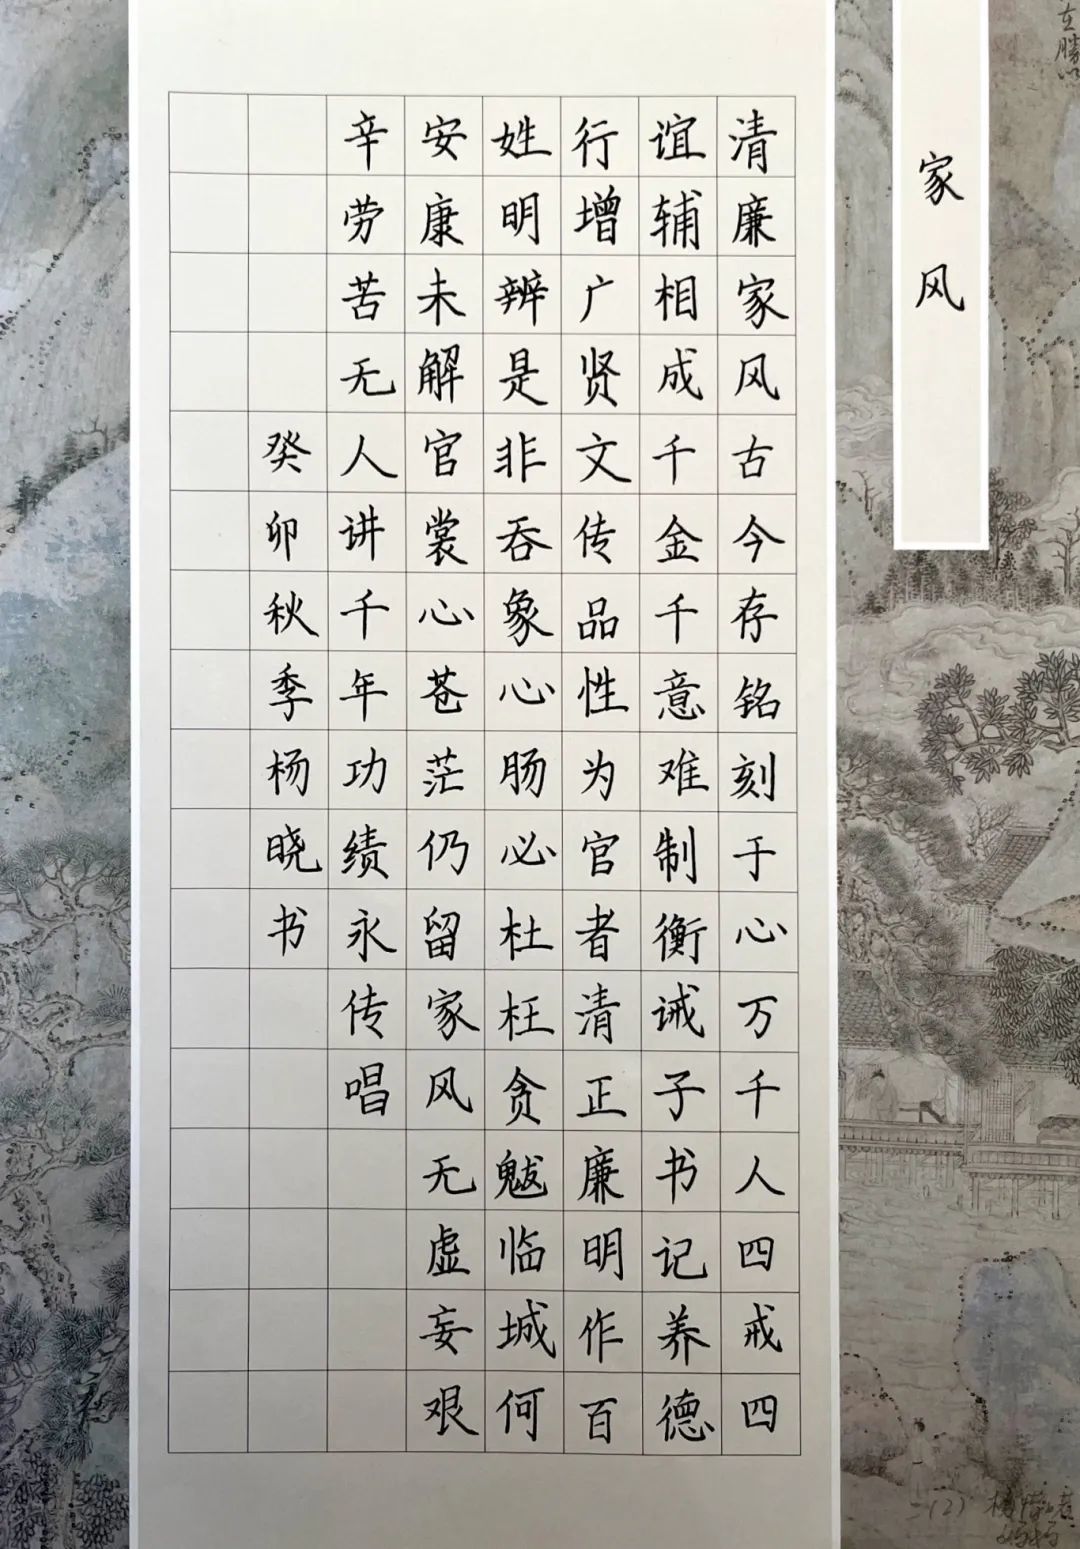 家风
清廉家风古今存铭刻于心万千人四戒四
谊辅相成千金千意难制衡诫子书记养德
行增广贤文传品性为官者清正廉明作百
姓明辨是非吞象心肠必杜枉贪魃临城何
安康未解官裳心苍茫仍留家风无虚妄艰
辛劳苦无人讲千年功绩永传唱
癸卯秋季杨晓书